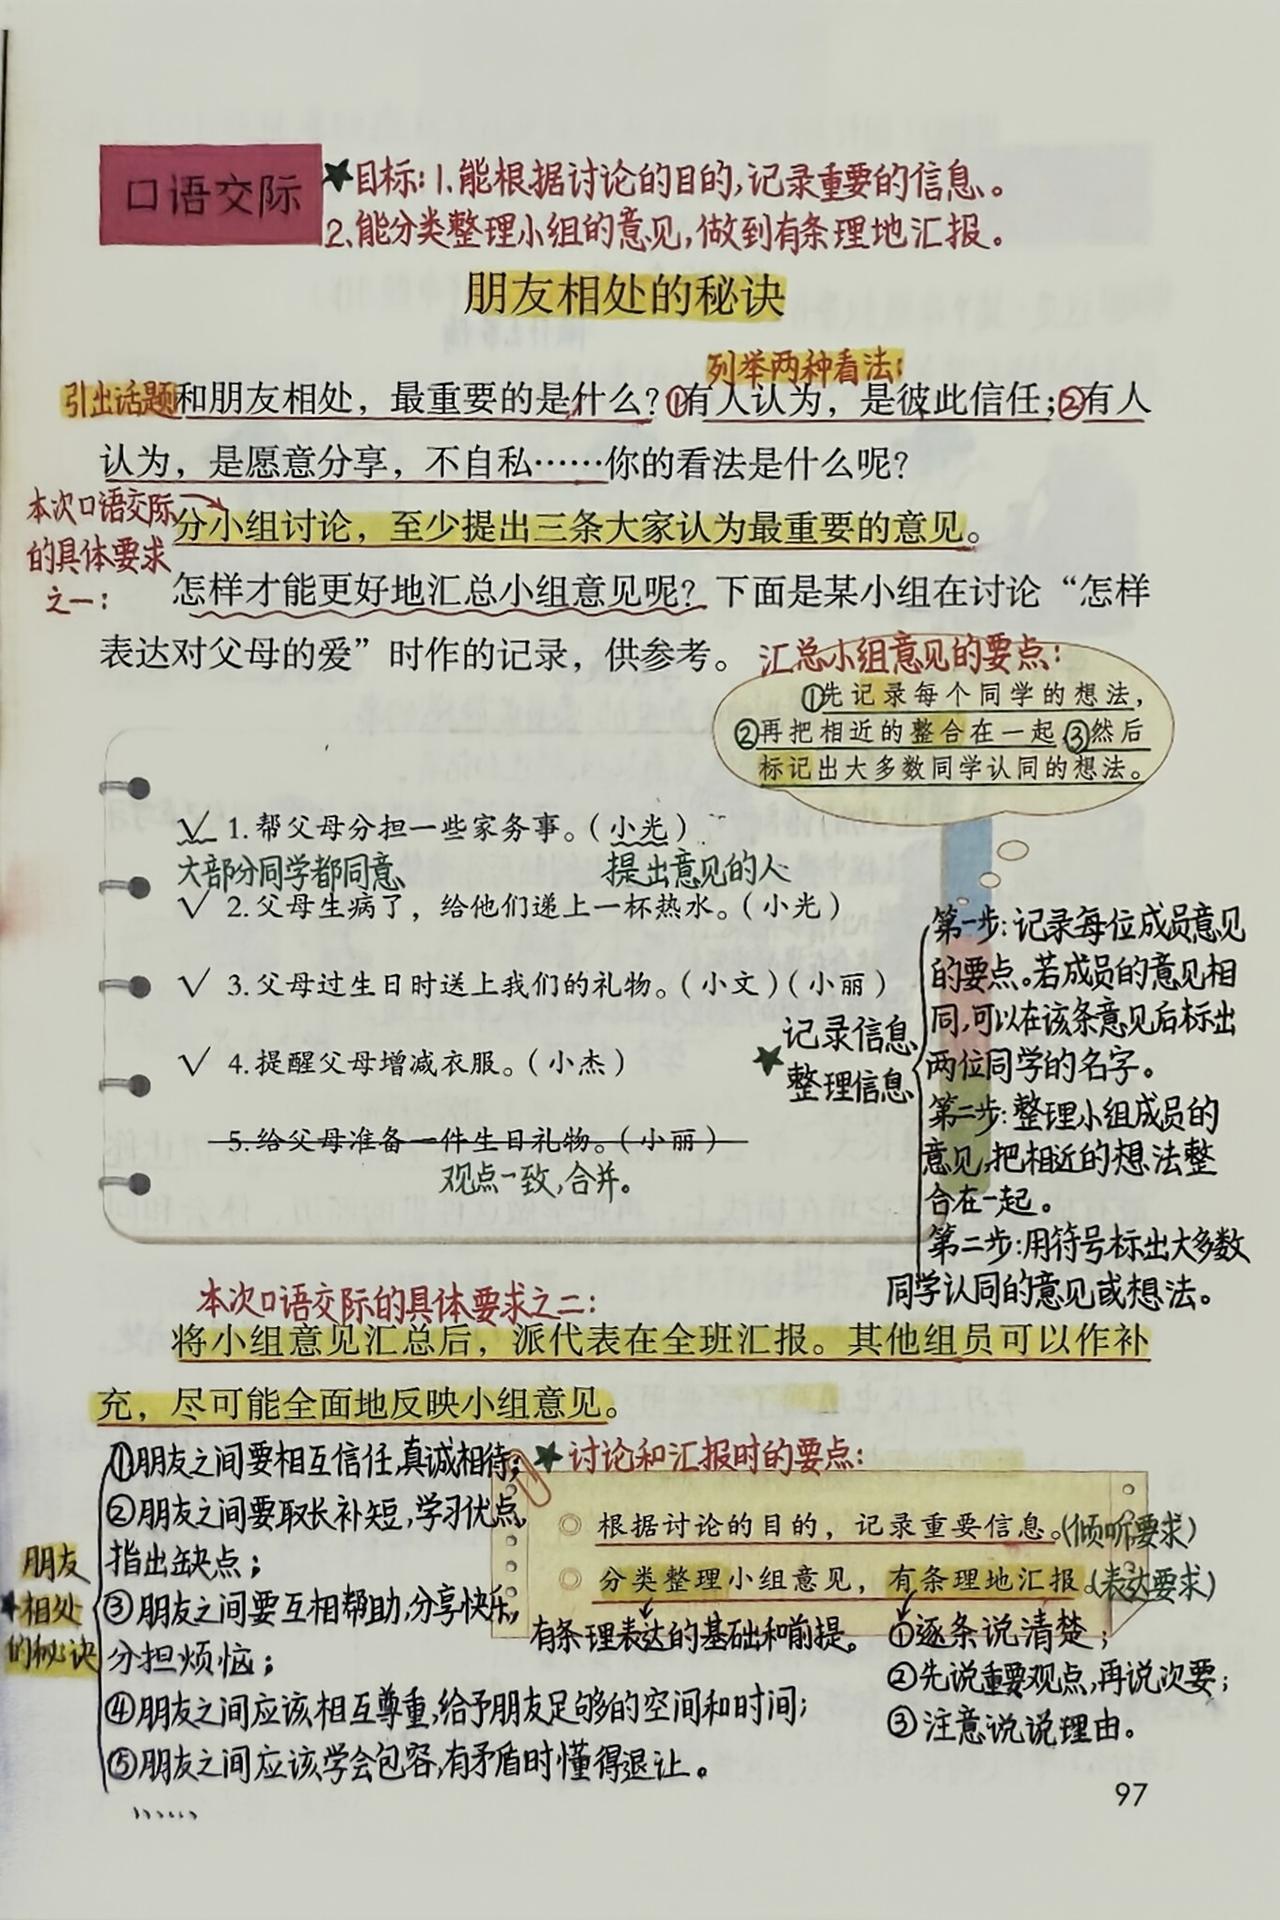 口语交际
★目标:1.能根据讨论的目的,记录重要的信息。
2.能分类整理小组的意见,做到有条理地汇报。
朋友相处的秘诀
列举两种看法:
引出话题 和朋友相处，最重要的是什么？①有人认为，是彼此信任；②有人
认为，是愿意分享，不自私……你的看法是什么呢？
本次口语交际
的具体要求
之一:
分小组讨论，至少提出三条大家认为最重要的意见。
怎样才能更好地汇总小组意见呢？下面是某小组在讨论“怎样
表达对父母的爱”时作的记录，供参考。
汇总小组意见的要点:
①先记录每个同学的想法，
②再把相近的整合在一起,③然后
标记出大多数同学认同的想法。
√ 1.帮父母分担一些家务事。（小光）
大部分同学都同意 提出意见的人
√ 2.父母生病了，给他们递上一杯热水。（小光）
√ 3.父母过生日时送上我们的礼物。（小文）（小丽）
√ 4.提醒父母增减衣服。（小杰）
5.给父母准备一件生日礼物。（小丽）
观点一致,合并。
★记录信息
整理信息
第一步:记录每位成员意见
的要点。若成员的意见相
同,可以在该条意见后标出
两位同学的名字。
第二步:整理小组成员的
意见,把相近的想法整
合在一起。
第二步:用符号标出大多数
同学认同的意见或想法。
本次口语交际的具体要求之二:
将小组意见汇总后，派代表在全班汇报。其他组员可以作补
充，尽可能全面地反映小组意见。
朋友
★相处
的秘诀
①朋友之间要相互信任,真诚相待;
②朋友之间要取长补短,学习优点,
指出缺点;
③朋友之间要互相帮助,分享快乐,
分担烦恼;
④朋友之间应该相互尊重,给予朋友足够的空间和时间;
⑤朋友之间应该学会包容,有矛盾时懂得退让。
......
★讨论和汇报时的要点:
◎ 根据讨论的目的，记录重要信息。(倾听要求)
◎ 分类整理小组意见，有条理地汇报。(表达要求)
有条理表达的基础和前提。
①逐条说清楚;
②先说重要观点,再说次要;
③注意说说理由。
97